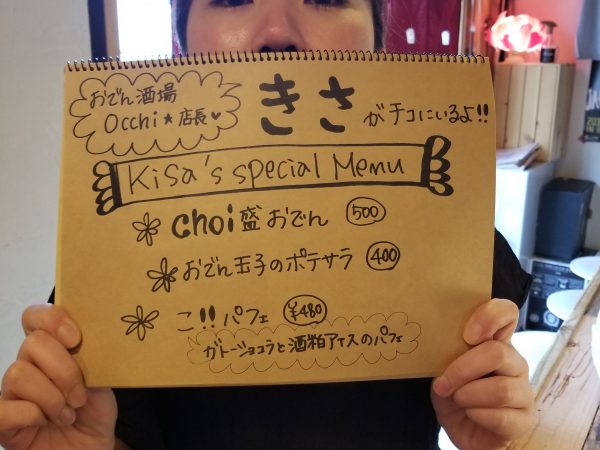 おでん酒場
Occhi★店長♥
きさがチコにいるよ!!
Kisa's special Menu
choi盛おでん 500
おでん玉子のポテサラ 400
こ!!パフェ ¥480
ガトーショコラと酒粕アイスのパフェ